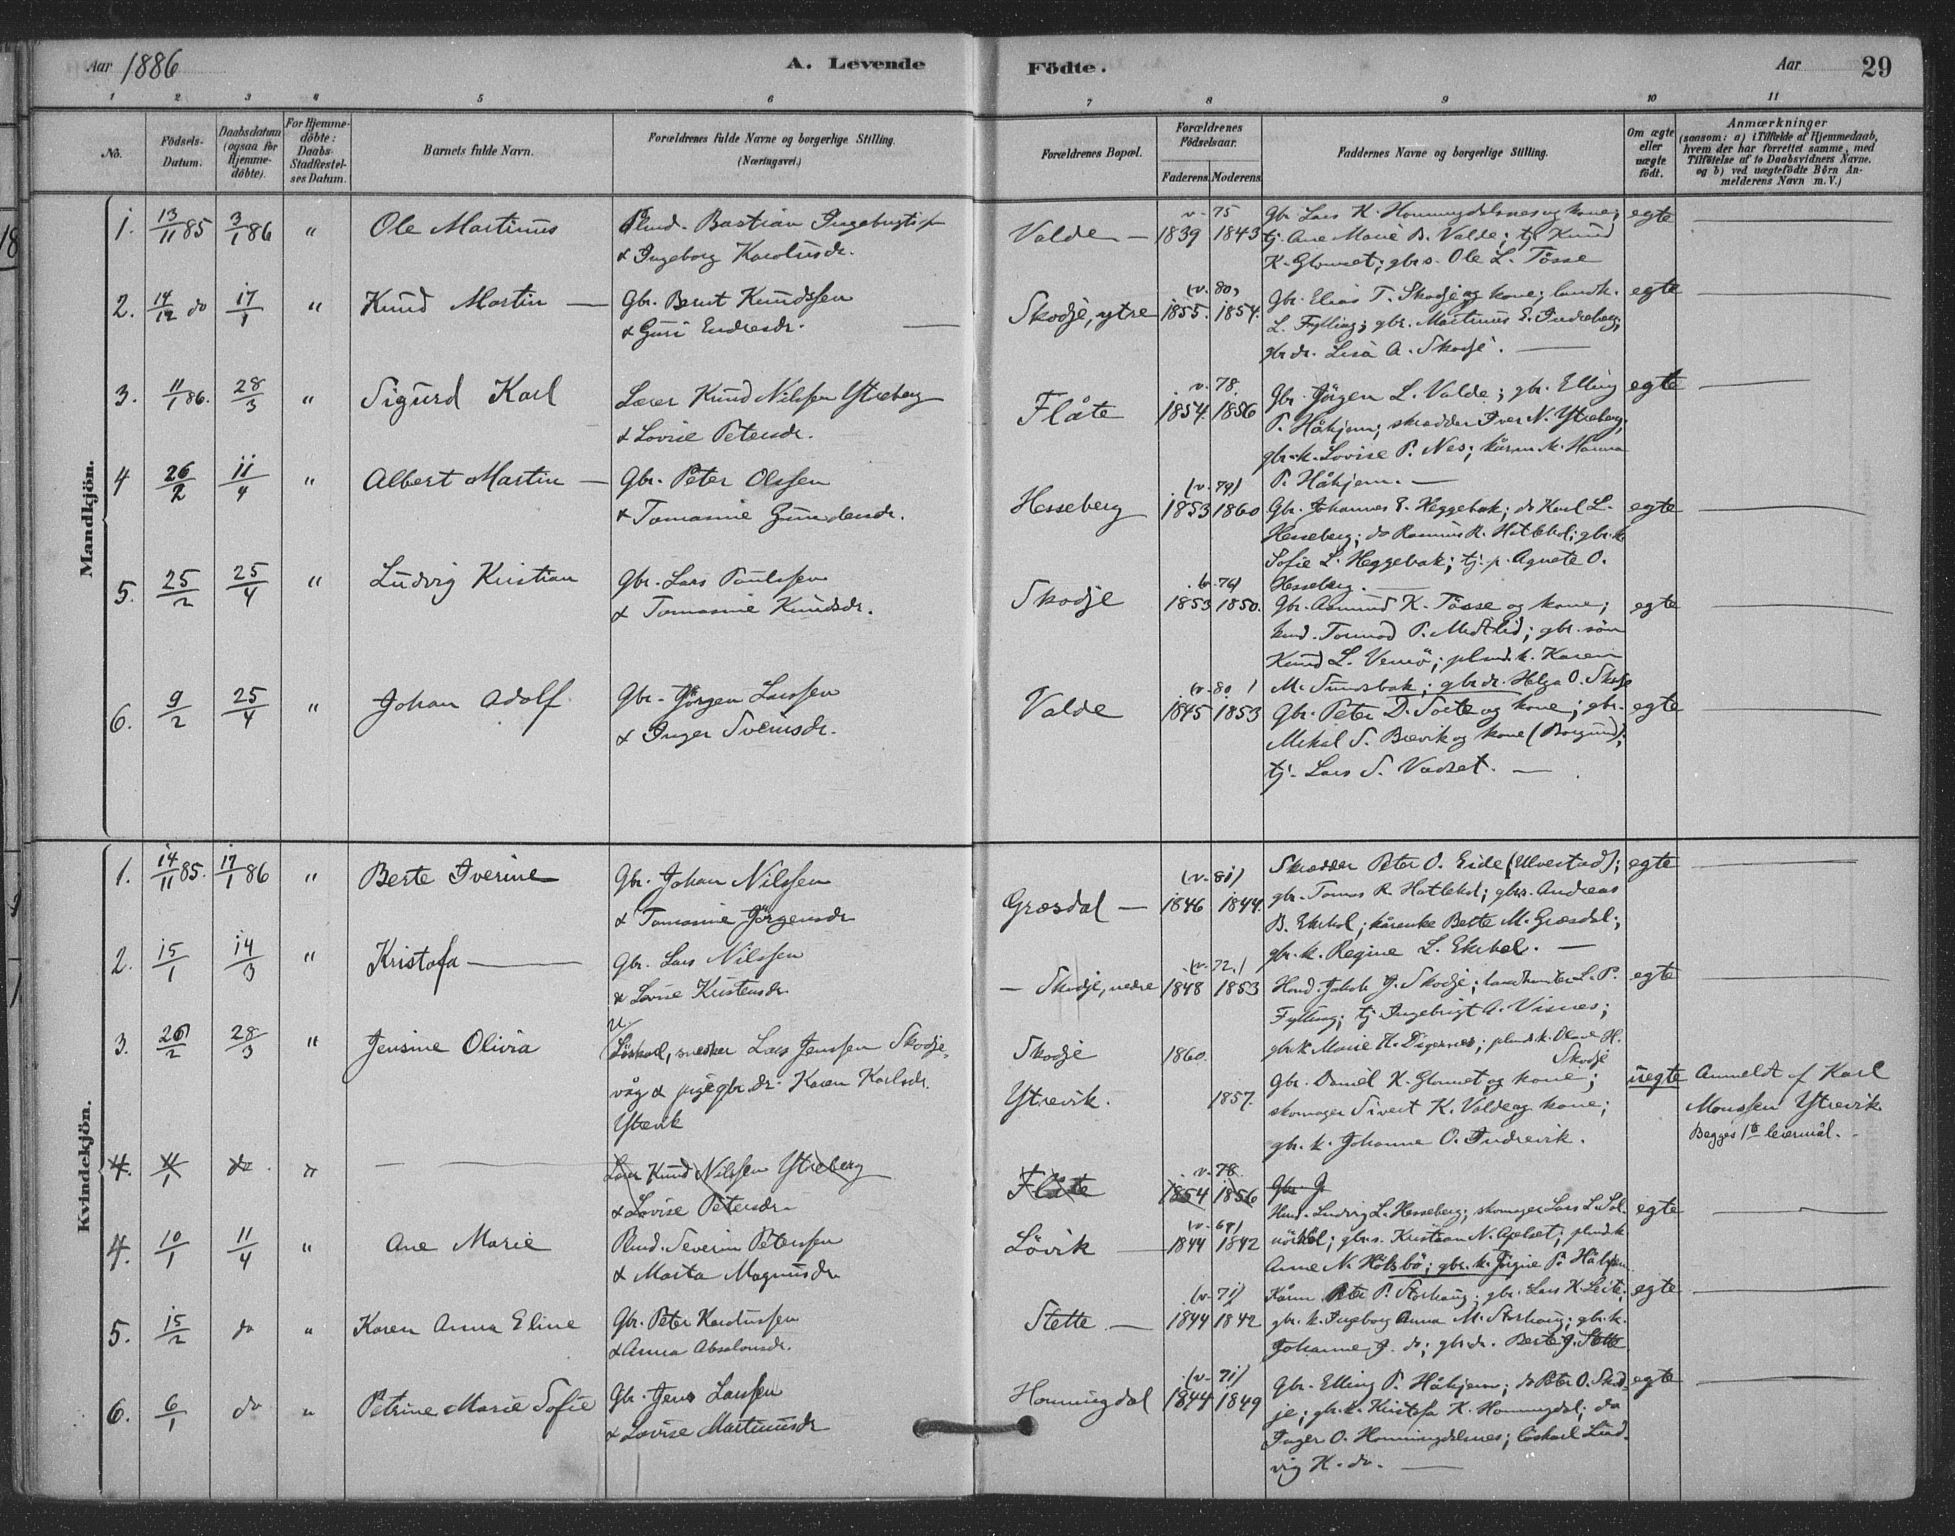 Aar 1886
A. Levende
Födte.
Aar
29
1 2 3 4 5 6 7 8 9 10 11
No.
Födsels-Datum.
Daabsdatum (ogsaa for Hjemme-döbte).
For Hjemme-döbte: Daabs-Stadfæstelses Datum.
Barnets fulde Navn.
Forældrenes fulde Navne og borgerlige Stilling. (Næringsvei.)
Forældrenes Bopæl.
Forældrenes Födselsaar.
Faderens. Moderens.
Faddernes Navne og borgerlige Stilling.
Om ægte eller uægte födt.
Anmærkninger
(saasom: a) i Tilfælde af Hjemmedaab, hvem der har forrettet samme, med Tilföielse af to Daabsvidners Navne. og b) ved uægtefödte Börn Anmelderens Navn m. V.)
Mandkjön.
1. 13/11 85 3/1 86 " Ole Martinus
Plmd. Bastian Ingebrigts.
& Ingeborg Karolusdr.
Valde — 1839 v. 75 1843
Gbr. Lars K. Honningdalsnes og kone;
tj. Ane Marie B. Valde; tj. Knud
K. Glomset; gbr.s. Ole L. Tösse
egte
2. 14/12 do 17/1 " Knud Martin —
Gbr. Bernt Knudssen
& Guri Endresdr. —
Skodje, ytre 1855. (v. 80) 1854.
Gbr. Elias T. Skodje og kone; landh.
L. Fylling; gbr. Martinus E. Indreberg;
gbr.dr. Lisa A. Skodje. —
egte
3. 11/1 86. 28/3 " Sigurd Karl
Lærer Knud Nilssen Ytreberg
& Lovise Petersdr.
Flåte 1854. v. 78. 1856
Gbr. Jörgen L. Valde; gbr. Elling
P. Håhjem; skrædder Iver N. Ytreberg;
gbr.k. Lovise P. Nes; kårm.k. Hanna
P. Håhjem. —
egte
4 26/2 11/4 " Albert Martin —
Gbr. Peter Olssen
& Tomasine Gundersdr.
Hesseberg 1853 (v. 79) 1860
Gbr. Johannes E. Heggebak; do Karl L.
Hesseberg; do Rasmus R. Hatlehol; gbr.k.
Sofie L. Heggebak; tj.p. Agnete O.
Hesseberg. —
egte
5. 25/2 25/4 " Ludvig Kristian
Gbr. Lars Paulssen
& Tomasine Knudsdr.
Skodje 1853 (v. 76) 1850.
Gbr. Asmund K. Tösse og kone;
hmd. Tormod P. Medtlid; gbr. sön
Knud L. Vemö; plmd.k. Karen
M. Sundsbak; gbr.dr. Helga O. Skodje
egte
6. 9/2 25/4 " Johan Adolf
Gbr. Jörgen Larssen
& Inger Sveinsdr.
Valde 1845 (v. 80) 1853
Gbr. Peter D. Solte og kone; gbr.
Mikal S. Brevik og kone (Borgund);
tj. Lars S. Vadset. —
egte
Kvindekjön.
1. 14/11 85. 17/1 86 " Berte Iverine
Gbr. Johan Nilssen
& Tomasine Jörgensdr.
Græsdal — 1846 (v. 81) 1844.
Skrædder Peter O. Eide (Ulvestad);
gbr. Tomas R. Hatlehol; gbr.s. Andreas
B. Ekrhol; kårenke Berte M. Græsdal;
gbr.k. Regine L. Ekrhol. —
egte
2. 15/1 14/3 " Kristofa —
Gbr. Lars Nilssen
& Lovise Kristensdr.
— Skodje, nedre 1848 (v. 72) 1853
Hmd. Jakob J. Skodje; landhandler L. P.
Fylling; tj. Ingebrigt A. Visnes;
gbr.k. Marie K. Digernes; plmd.k. Olave H.
Skodje
egte
3. 26/2 28/3 " Jensine Olivia
U/ Löskarl, snedker Lars Jenssen Skodje-
våg & pige gbr.dr. Karen Karlsdr.
Ytrevik
Skodje 1860.
Ytrevik. 1857.
Gbr. Daniel K. Glomset og kone;
skomager Sivert K. Valde og kone;
gbr.k. Johanne O. Indrevik.
uegte Anmeldt af Karl
Monssen Ytrevik.
Begges 1ste leiermål.
4. 11/1 do. do — —
Lærer Knud Nilssen Ytreberg
& Lovise Petersdr.
Flåte 1854 v. 78 1856
Gbr. J
4. 10/1 11/4 " Ane Marie
Plmd. Severin Peterssen
& Marta Magnusdr.
Lövik — 1844 (v. 69) 1842
Hmd. Ludvig L. Hesseberg; skomager Lars L. Sol-
nörkol; gbr.s. Kristian N. Apelset; plmd.k.
Anne N. Holsbö; gbr.k. Jögine P. Håhjem
egte
5. 15/2 do " Karen Anna Eline
Gbr. Peter Karolussen
& Anna Absalonsdr.
Stette — 1844 (v. 71) 1842
Kårm. Peter P. Storhaug; gbr. Lars K. Leite;
gbr.k. Ingeborg Anna M. Storhaug; gbr.k.
Johanne J. do; gbr.dr. Berte J. Stette
egte
6. 6/1 do " Petrine Marie Sofie
Gbr. Jens Larssen
& Lovise Martinusdr
Honningdal 1844 (v. 71) 1849
Gbr. Elling P. Håhjem; do Peter O. Skod-
je; gbr.k. Kristofa K. Honningdal; do
Inger O. Honningdalsnes; löskarl Lud-
vig K. do. —
egte